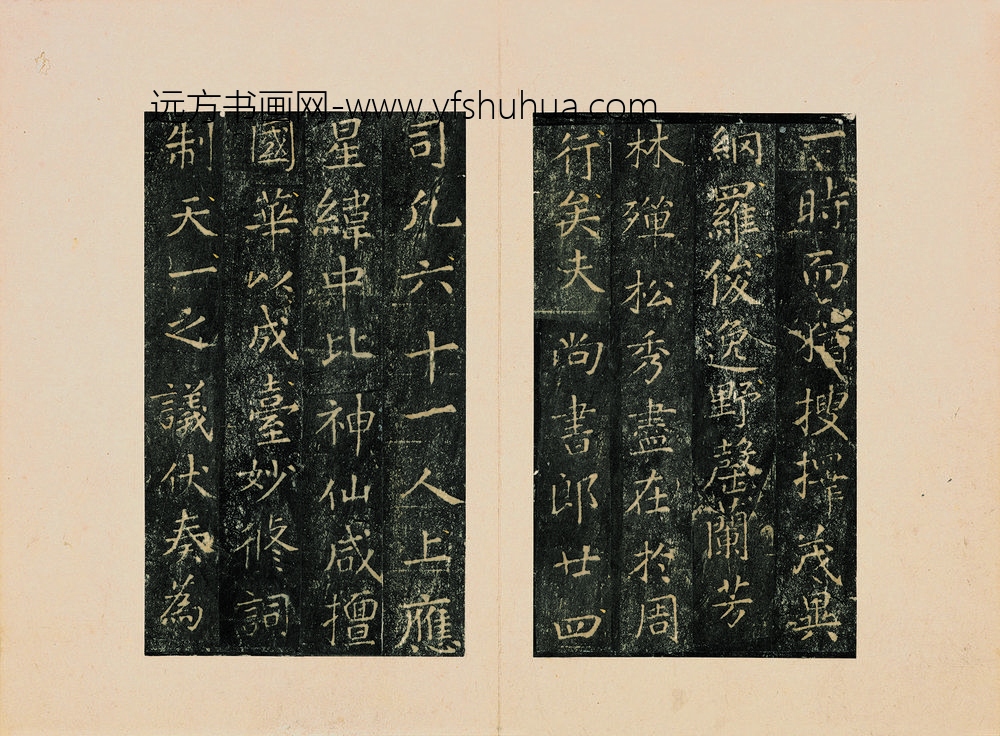 远方书画网-www.yfshuhua.com
一時而猶搜擇茂異
網羅俊逸野罄蘭芳
林殫松秀盡在於周
行矣夫尚書郎廿四
司凡六十一人上應
星緯中比神仙咸擅
國華以成臺妙修詞
制天一之議伏奏為